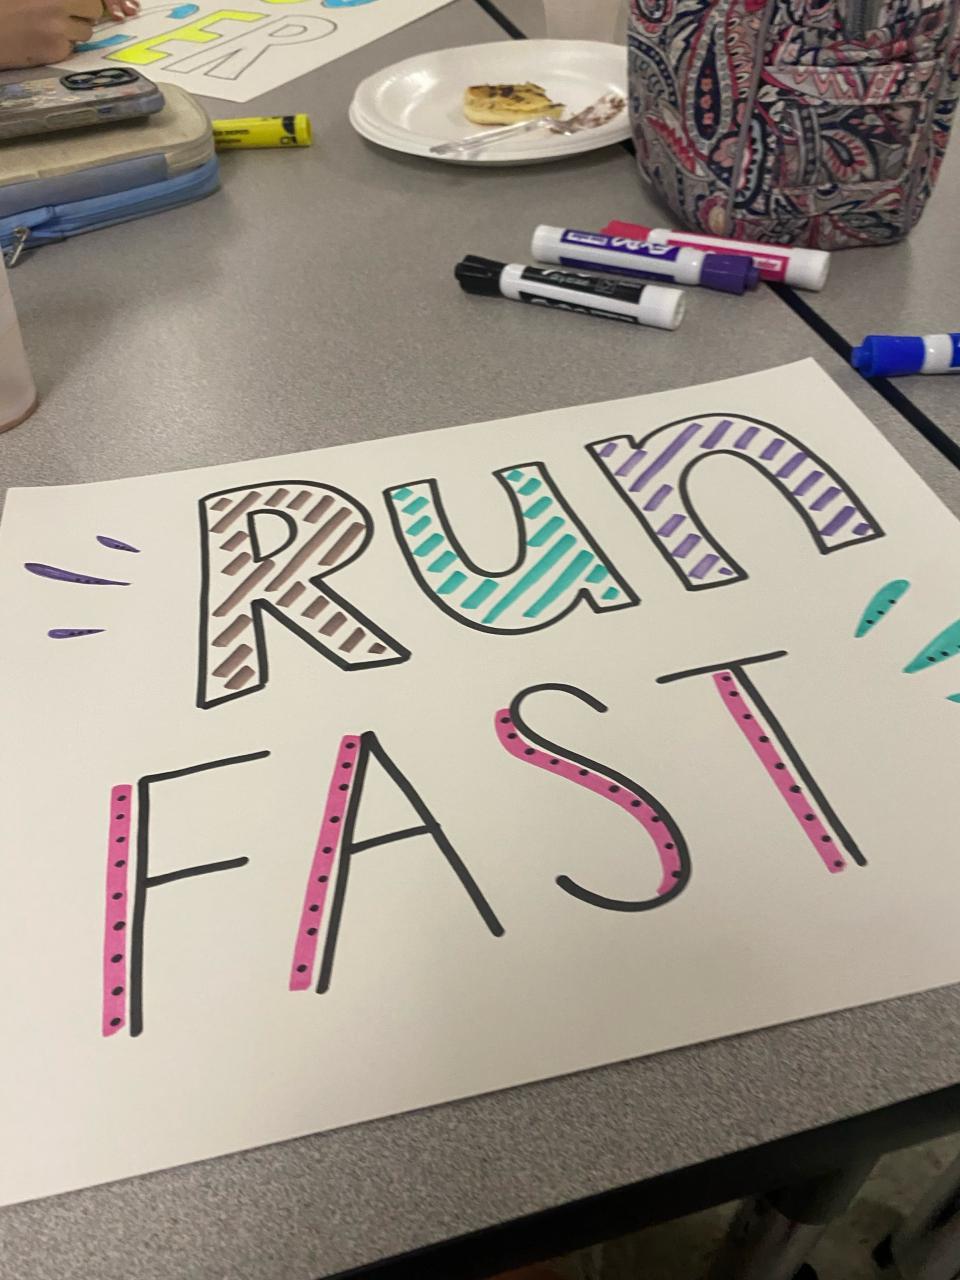 CER
Run
FAST